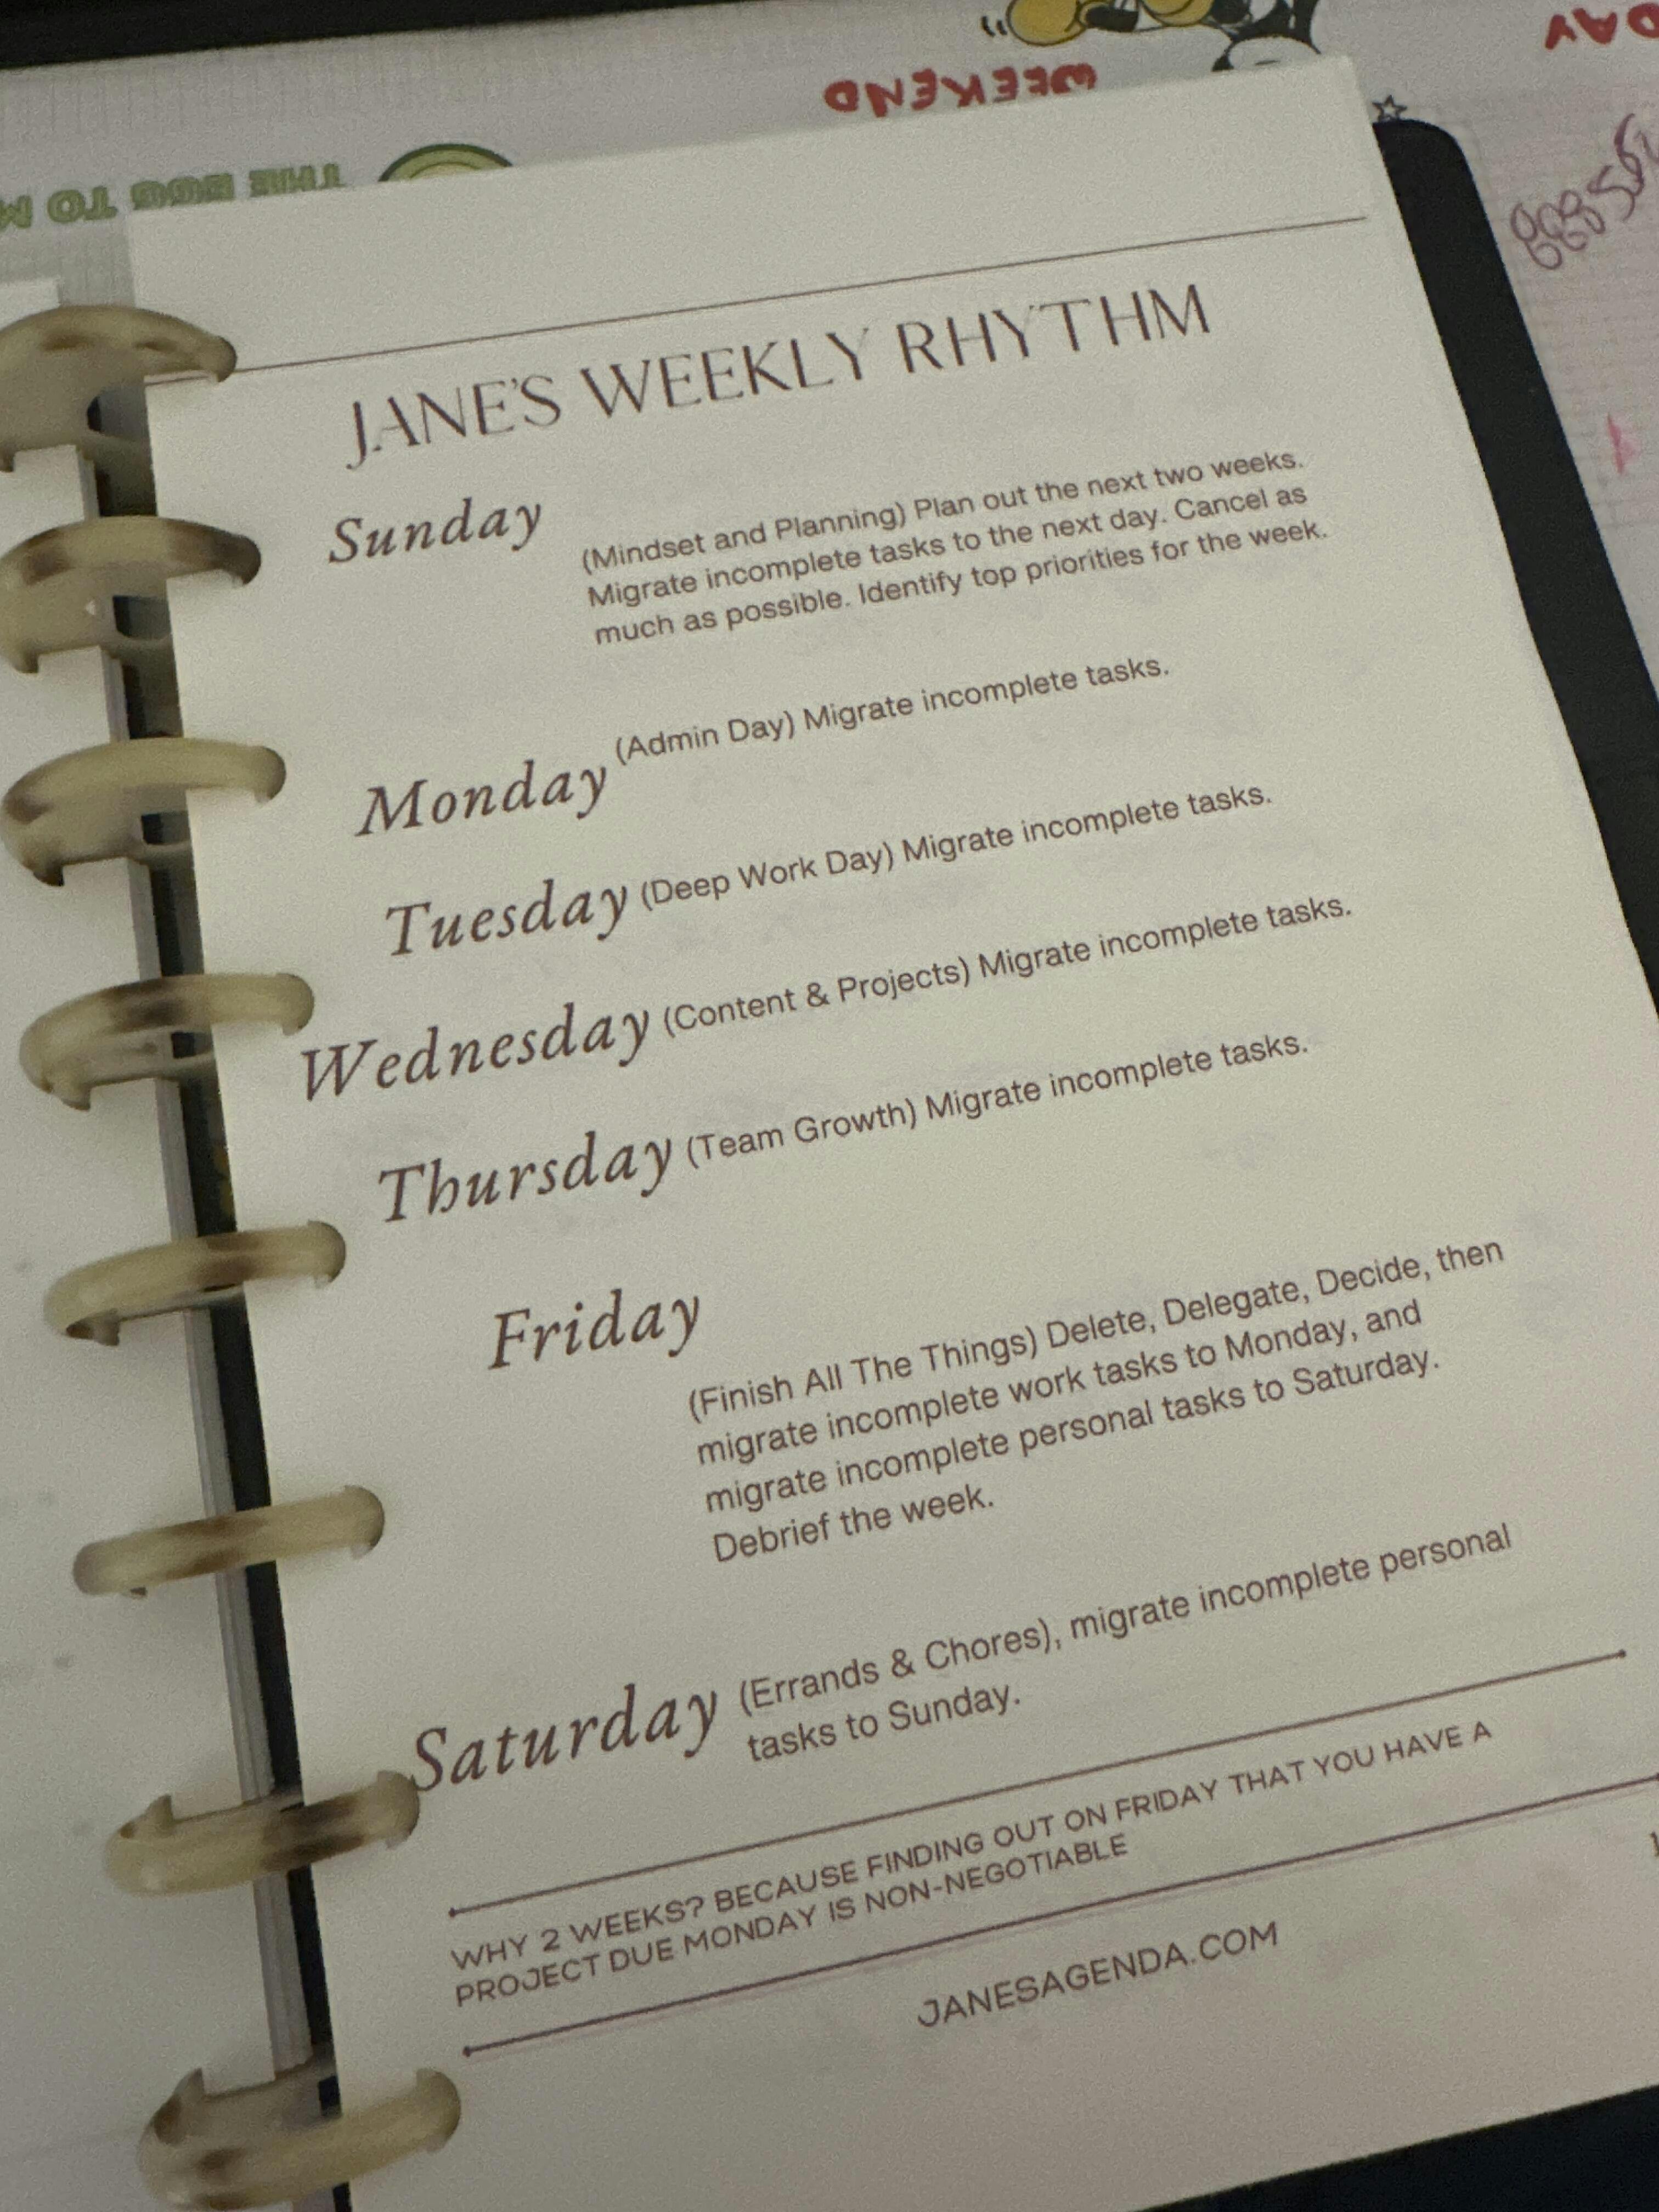 WEEKEND
THE EGG TO M
JANE'S WEEKLY RHYTHM
Sunday
(Mindset and Planning) Plan out the next two weeks.
Migrate incomplete tasks to the next day. Cancel as
much as possible. Identify top priorities for the week.
Monday (Admin Day) Migrate incomplete tasks.
Tuesday (Deep Work Day) Migrate incomplete tasks.
Wednesday (Content & Projects) Migrate incomplete tasks.
Thursday (Team Growth) Migrate incomplete tasks.
Friday
(Finish All The Things) Delete, Delegate, Decide, then
migrate incomplete work tasks to Monday, and
migrate incomplete personal tasks to Saturday.
Debrief the week.
Saturday (Errands & Chores), migrate incomplete personal
tasks to Sunday.
WHY 2 WEEKS? BECAUSE FINDING OUT ON FRIDAY THAT YOU HAVE A
PROJECT DUE MONDAY IS NON-NEGOTIABLE
JANESAGENDA.COM